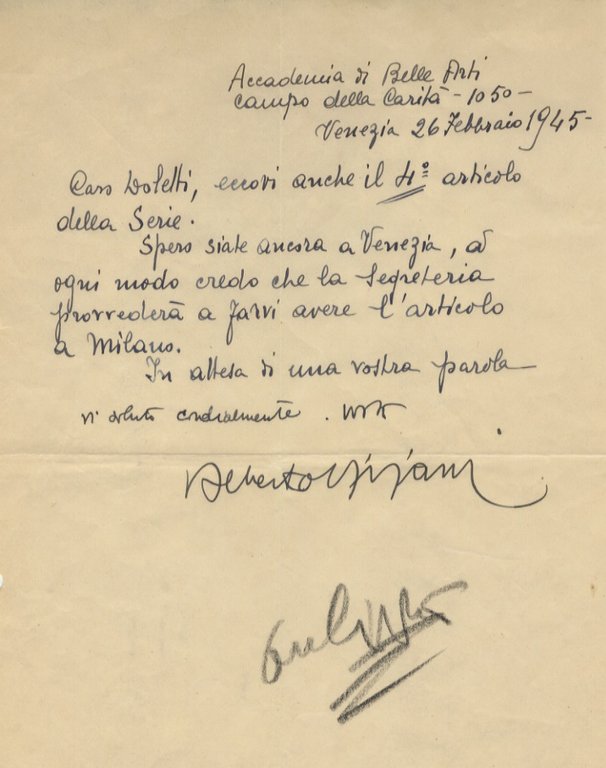 Accademia di Belle Arti
campo della Carità - 1050 -
Venezia 26 Febbraio 1945 -
Caro Doletti, eccovi anche il 4º articolo
della Serie.
Spero siate ancora a Venezia, ad
ogni modo credo che la Segreteria
provvederà a farvi avere l'articolo
a Milano.
In attesa di una vostra parola
vi saluto cordialmente. vostro
Alberto